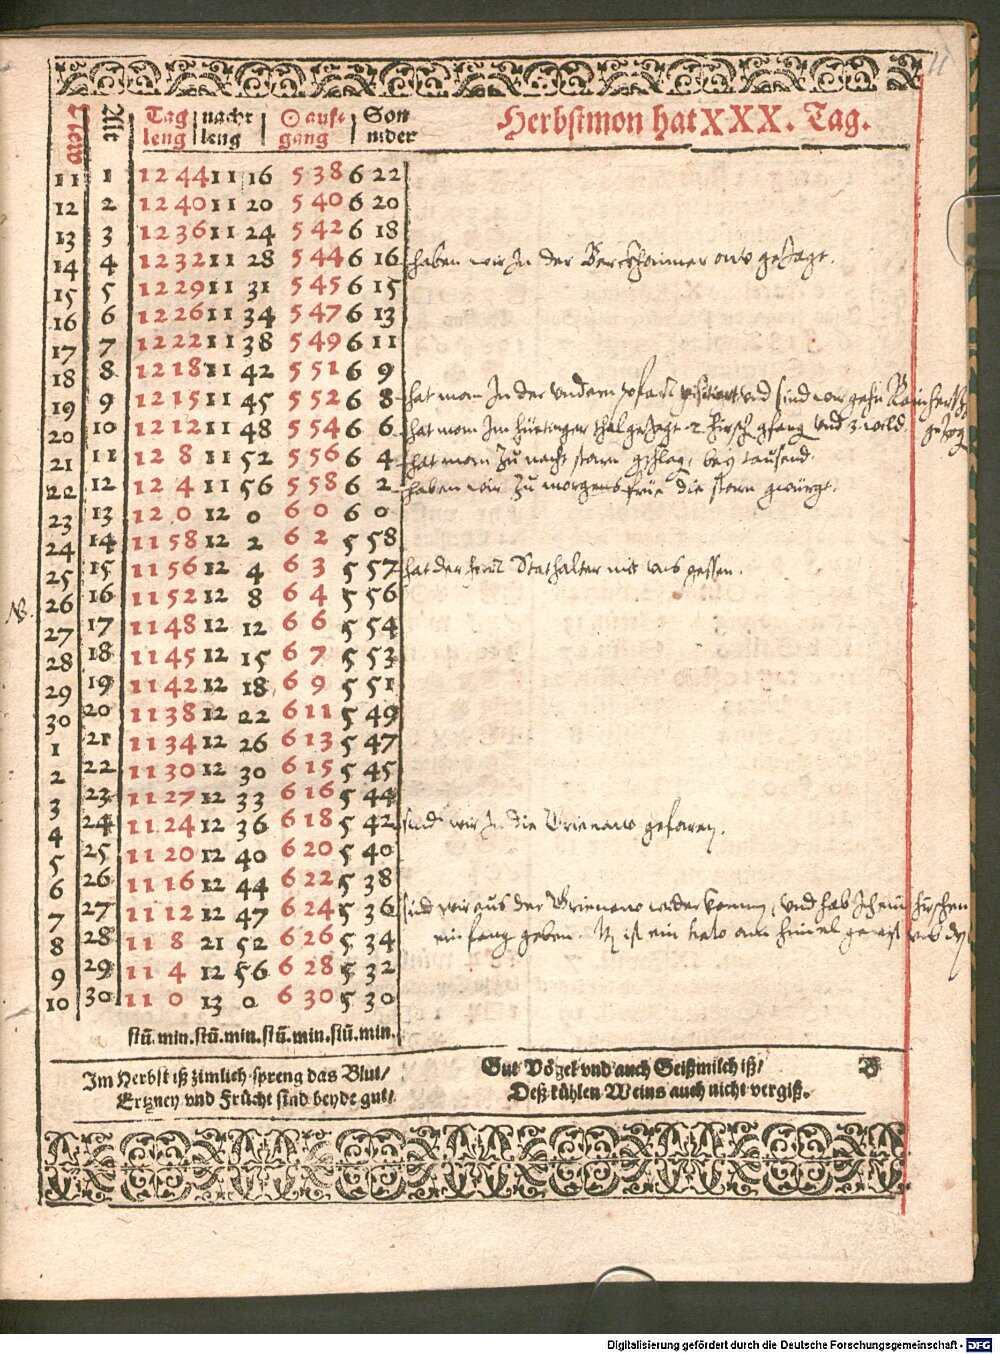 Herbstmon hat XXX. Tag.
Newe Alte Tag leng nacht leng ☉ aufgang Son nider
11 1 12 44 11 16 5 38 6 22
12 2 12 40 11 20 5 40 6 20
13 3 12 36 11 24 5 42 6 18
14 4 12 32 11 28 5 44 6 16 haben wir In der Berckhaimer aw gejagt.
15 5 12 29 11 31 5 45 6 15
16 6 12 26 11 34 5 47 6 13
17 7 12 22 11 38 5 49 6 11
18 8 12 18 11 42 5 51 6 9
19 9 12 15 11 45 5 52 6 8 hat man In der undern pfarr visitiert und sind wir gehn
20 10 12 12 11 48 5 54 6 6 hat man Im thal gejagt 2 hirsch gfang und 3 wild
21 11 12 8 11 52 5 56 6 4 hat man Zu nacht starn gschlag, bey tausend.
22 12 12 4 11 56 5 58 6 2 haben wir Zu morgens früe die starn gwürgt.
23 13 12 0 12 0 6 0 6 0
24 14 11 58 12 2 6 2 5 58
25 15 11 56 12 4 6 3 5 57 hat der herr Stathalter mit uns gessen.
NB. 26 16 11 52 12 8 6 4 5 56
27 17 11 48 12 12 6 6 5 54
28 18 11 45 12 15 6 7 5 53
29 19 11 42 12 18 6 9 5 51
30 20 11 38 12 22 6 11 5 49
1 21 11 34 12 26 6 13 5 47
2 22 11 30 12 30 6 15 5 45
3 23 11 27 12 33 6 16 5 44
4 24 11 24 12 36 6 18 5 42 sind wir In die gefaren.
5 25 11 20 12 40 6 20 5 40
6 26 11 16 12 44 6 22 5 38
7 27 11 12 12 47 6 24 5 36 sind wir aus der wider komen, und hab Ich ein hirschen
8 28 11 8 21 52 6 26 5 34 ein fang geben. ist ein am
9 29 11 4 12 56 6 28 5 32
10 30 11 0 13 0 6 30 5 30
stū. min. stū. min. stū. min. stū. min.
Im Herbst iß zimlich spreng das Blut/
Ertzney vnd Frücht sind beyde gut/
Gut Vögel vnd auch Geißmilch iß/
Deß kühlen Weins auch nicht vergiß.
B
Digitalisierung gefördert durch die Deutsche Forschungsgemeinschaft - DFG